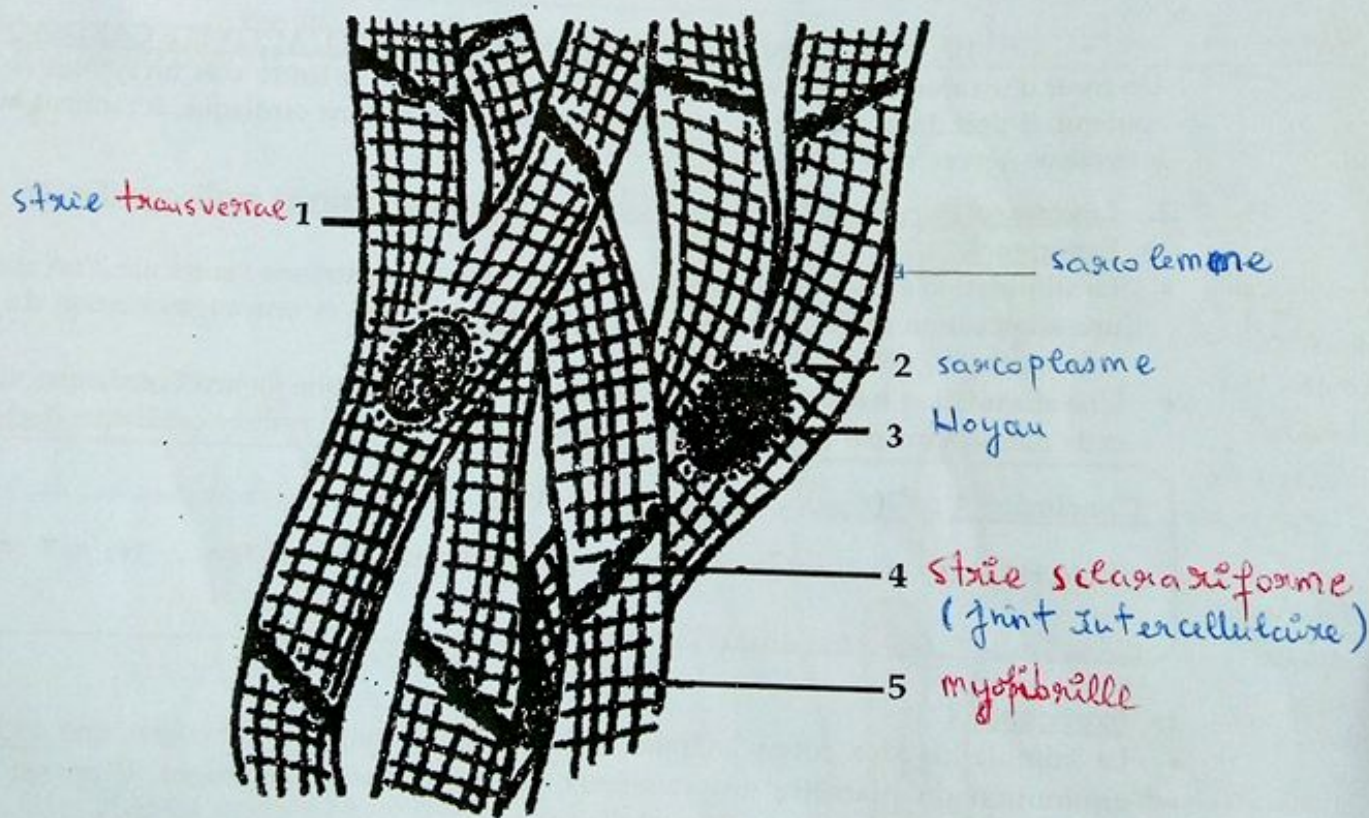 strie transversae 1
sarcolemme
2 sarcoplasme
3 Noyau
4 strie sclarariforme
(joint Intercellulaire)
5 myofibrille